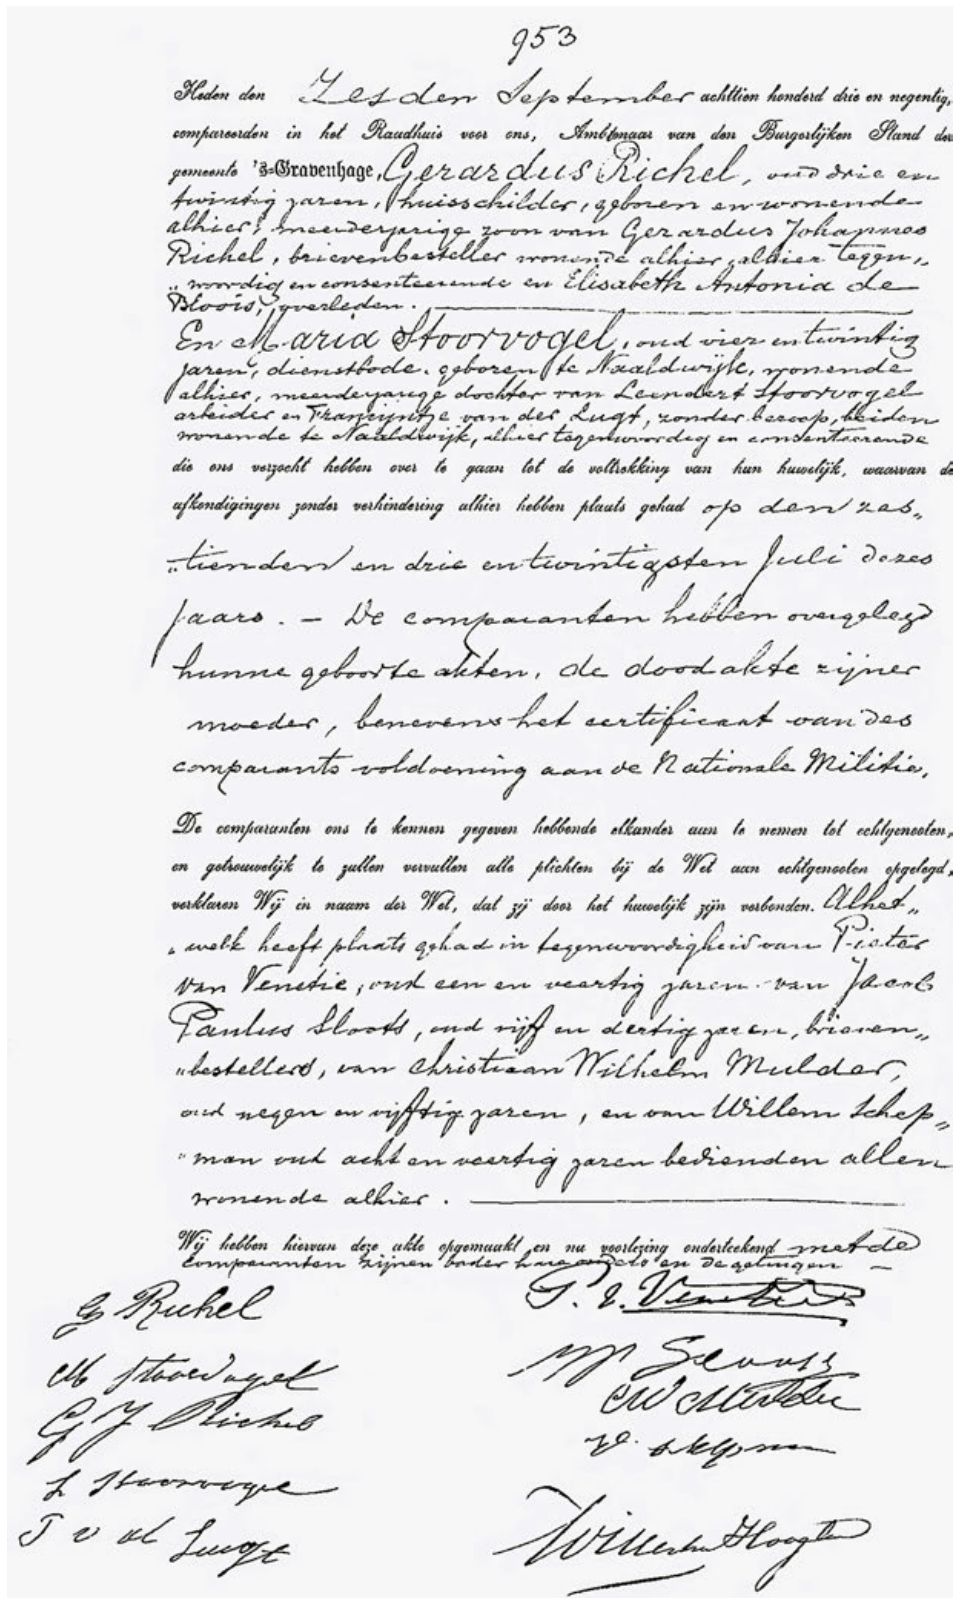 953
Heden den Zesden September achttien honderd drie en negentig,
compareerden in het Raadhuis voor ons, Ambtenaar van den Burgerlijken Stand der
gemeente 's-Gravenhage, Gerardus Richel, oud drie en
twintig jaren, huisschilder, geboren en wonende
alhier, meerderjarige zoon van Gerardus Johannes
Richel, brievenbesteller wonende alhier, alhier tegen„
„woordig en consenteerende en Elisabeth Antonia de
Bloois, overleden.
En Maria Stoorvogel, oud vier en twintig
jaren, dienstbode, geboren te Naaldwijk, wonende
alhier, meerderjarige dochter van Leendert Stoorvogel
arbeider en Francijntje van der Lugt, zonder beroep, beiden
wonende te Naaldwijk, alhier tegenwoordig en consenteerende
die ons verzocht hebben over te gaan tot de voltrekking van hun huwelijk, waarvan de
afkondigingen zonder verhindering alhier hebben plaats gehad op den zes„
„tienden en drie en twintigsten Juli dezes
jaars. — De comparanten hebben overgelegd
hunne geboorte akten, de doodakte zijner
moeder, benevens het certificaat van des
comparants voldoening aan de Nationale Militie.
De comparanten ons te kennen gegeven hebbende elkander aan te nemen tot echtgenooten,
en getrouwelijk te zullen vervullen alle plichten bij de Wet aan echtgenooten opgelegd,
verklaren Wij in naam der Wet, dat zij door het huwelijk zijn verbonden. Alhet„
„welk heeft plaats gehad in tegenwoordigheid van Pieter
van Venetie, oud een en veertig jaren van Jacob
Paulus Sloots, oud vijf en dertig jaren, brieven„
„bestellers, van Christiaan Wilhelm Mulder,
oud negen en vijftig jaren, en van Willem Schep„
„man oud acht en veertig jaren bedienden allen
wonende alhier.
Wij hebben hiervan deze akte opgemaakt en na voorlezing onderteekend met de
comparanten zijnen vader hare ouders en de getuigen
G Richel
P. v. Venetie
M Stoorvogel
Sloots
G J Richel
CW Mulder
L Stoorvogel
F v d Lugt